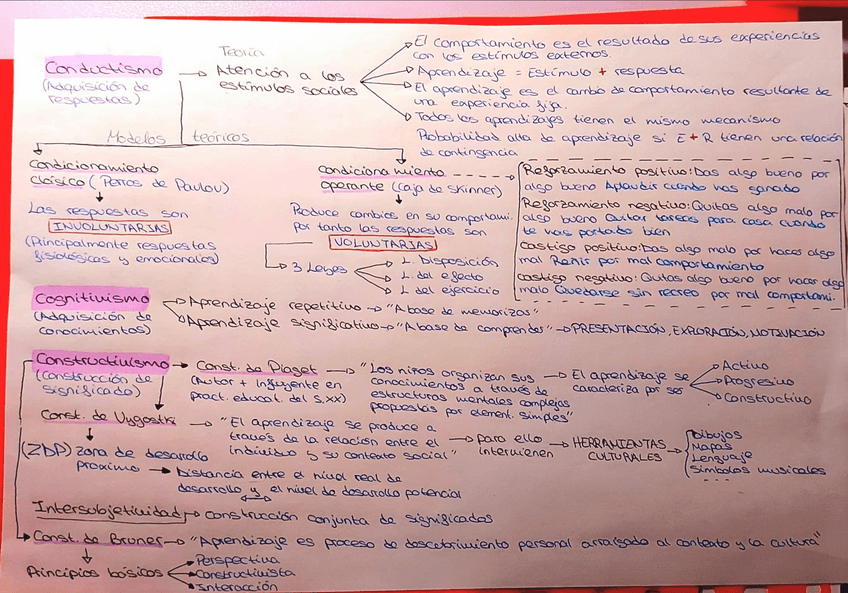 Teoría
Conductismo → Atención a los estímulos sociales
(Adquisición de respuestas)
El comportamiento es el resultado de sus experiencias
con los estímulos externos.
Aprendizaje = Estímulo + respuesta
El aprendizaje es el cambio de comportamiento resultante de
una experiencia fija.
Todos los aprendizajes tienen el mismo mecanismo
Probabilidad alta de aprendizaje si E + R tienen una relación
de contingencia
Modelos teóricos
Condicionamiento
clásico (Perros de Paulov)
Las respuestas son
INVOLUNTARIAS
(Principalmente respuestas
fisiológicas y emocionales)
condicionamiento
operante (caja de skinner)
Produce cambios en su comportami.
por tanto las respuestas son
VOLUNTARIAS
3 Leyes
L. Disposición
L. del efecto
L. del ejercicio
Reforzamiento positivo: Das algo bueno por
algo bueno Aplaudir cuando has ganado
Reforzamiento negativo: Quitas algo malo por
algo bueno Quitar tareas para casa cuando
te has portado bien
Castigo positivo: Das algo malo por haces algo
mal Reñir por mal comportamiento
castigo negativo: Quitas algo bueno por hacer algo
malo Quedarse sin recreo por mal comportami.
Cognitivismo
(Adquisición de
conocimientos)
Aprendizaje repetitivo → "A base de memorizar"
Aprendizaje significativo → "A base de comprender" → PRESENTACIÓN, EXPLORACIÓN, MOTIVACIÓN
Constructivismo
(Construcción de
significado)
Const. de Piaget
(Autor + influyente en
pract. educat. del S.XX)
"Los niños organizan sus
conocimientos a través de
estructuras mentales complejas
propuestas por element. simples"
El aprendizaje se
caracteriza por ser
Activo
Progresivo
Constructivo
Const. de Vygostki
"El aprendizaje se produce a
través de la relación entre el
individuo y su contexto social"
para ello
intervienen
HERRAMIENTAS
CULTURALES
Dibujos
Mapas
Lenguaje
Símbolos musicales
(ZDP) zona de desarollo
proximo
Distancia entre el nivel real de
desarrollo y el nivel de desarollo potencial
Intersubjetividad → construcción conjunta de significados
Const. de Bruner → "Aprendizaje es proceso de descubrimiento personal arraigado al contexto y la cultura"
Principios básicos
Perspectiva
Constructivista
Interacción